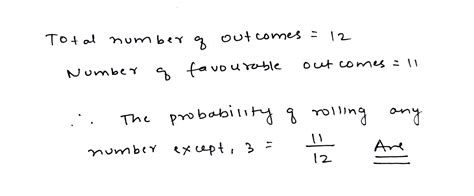 Total number of outcomes = 12
Number of favourable outcomes = 11
∴ The probability of rolling any
number except, 3 = 11/12 Ans